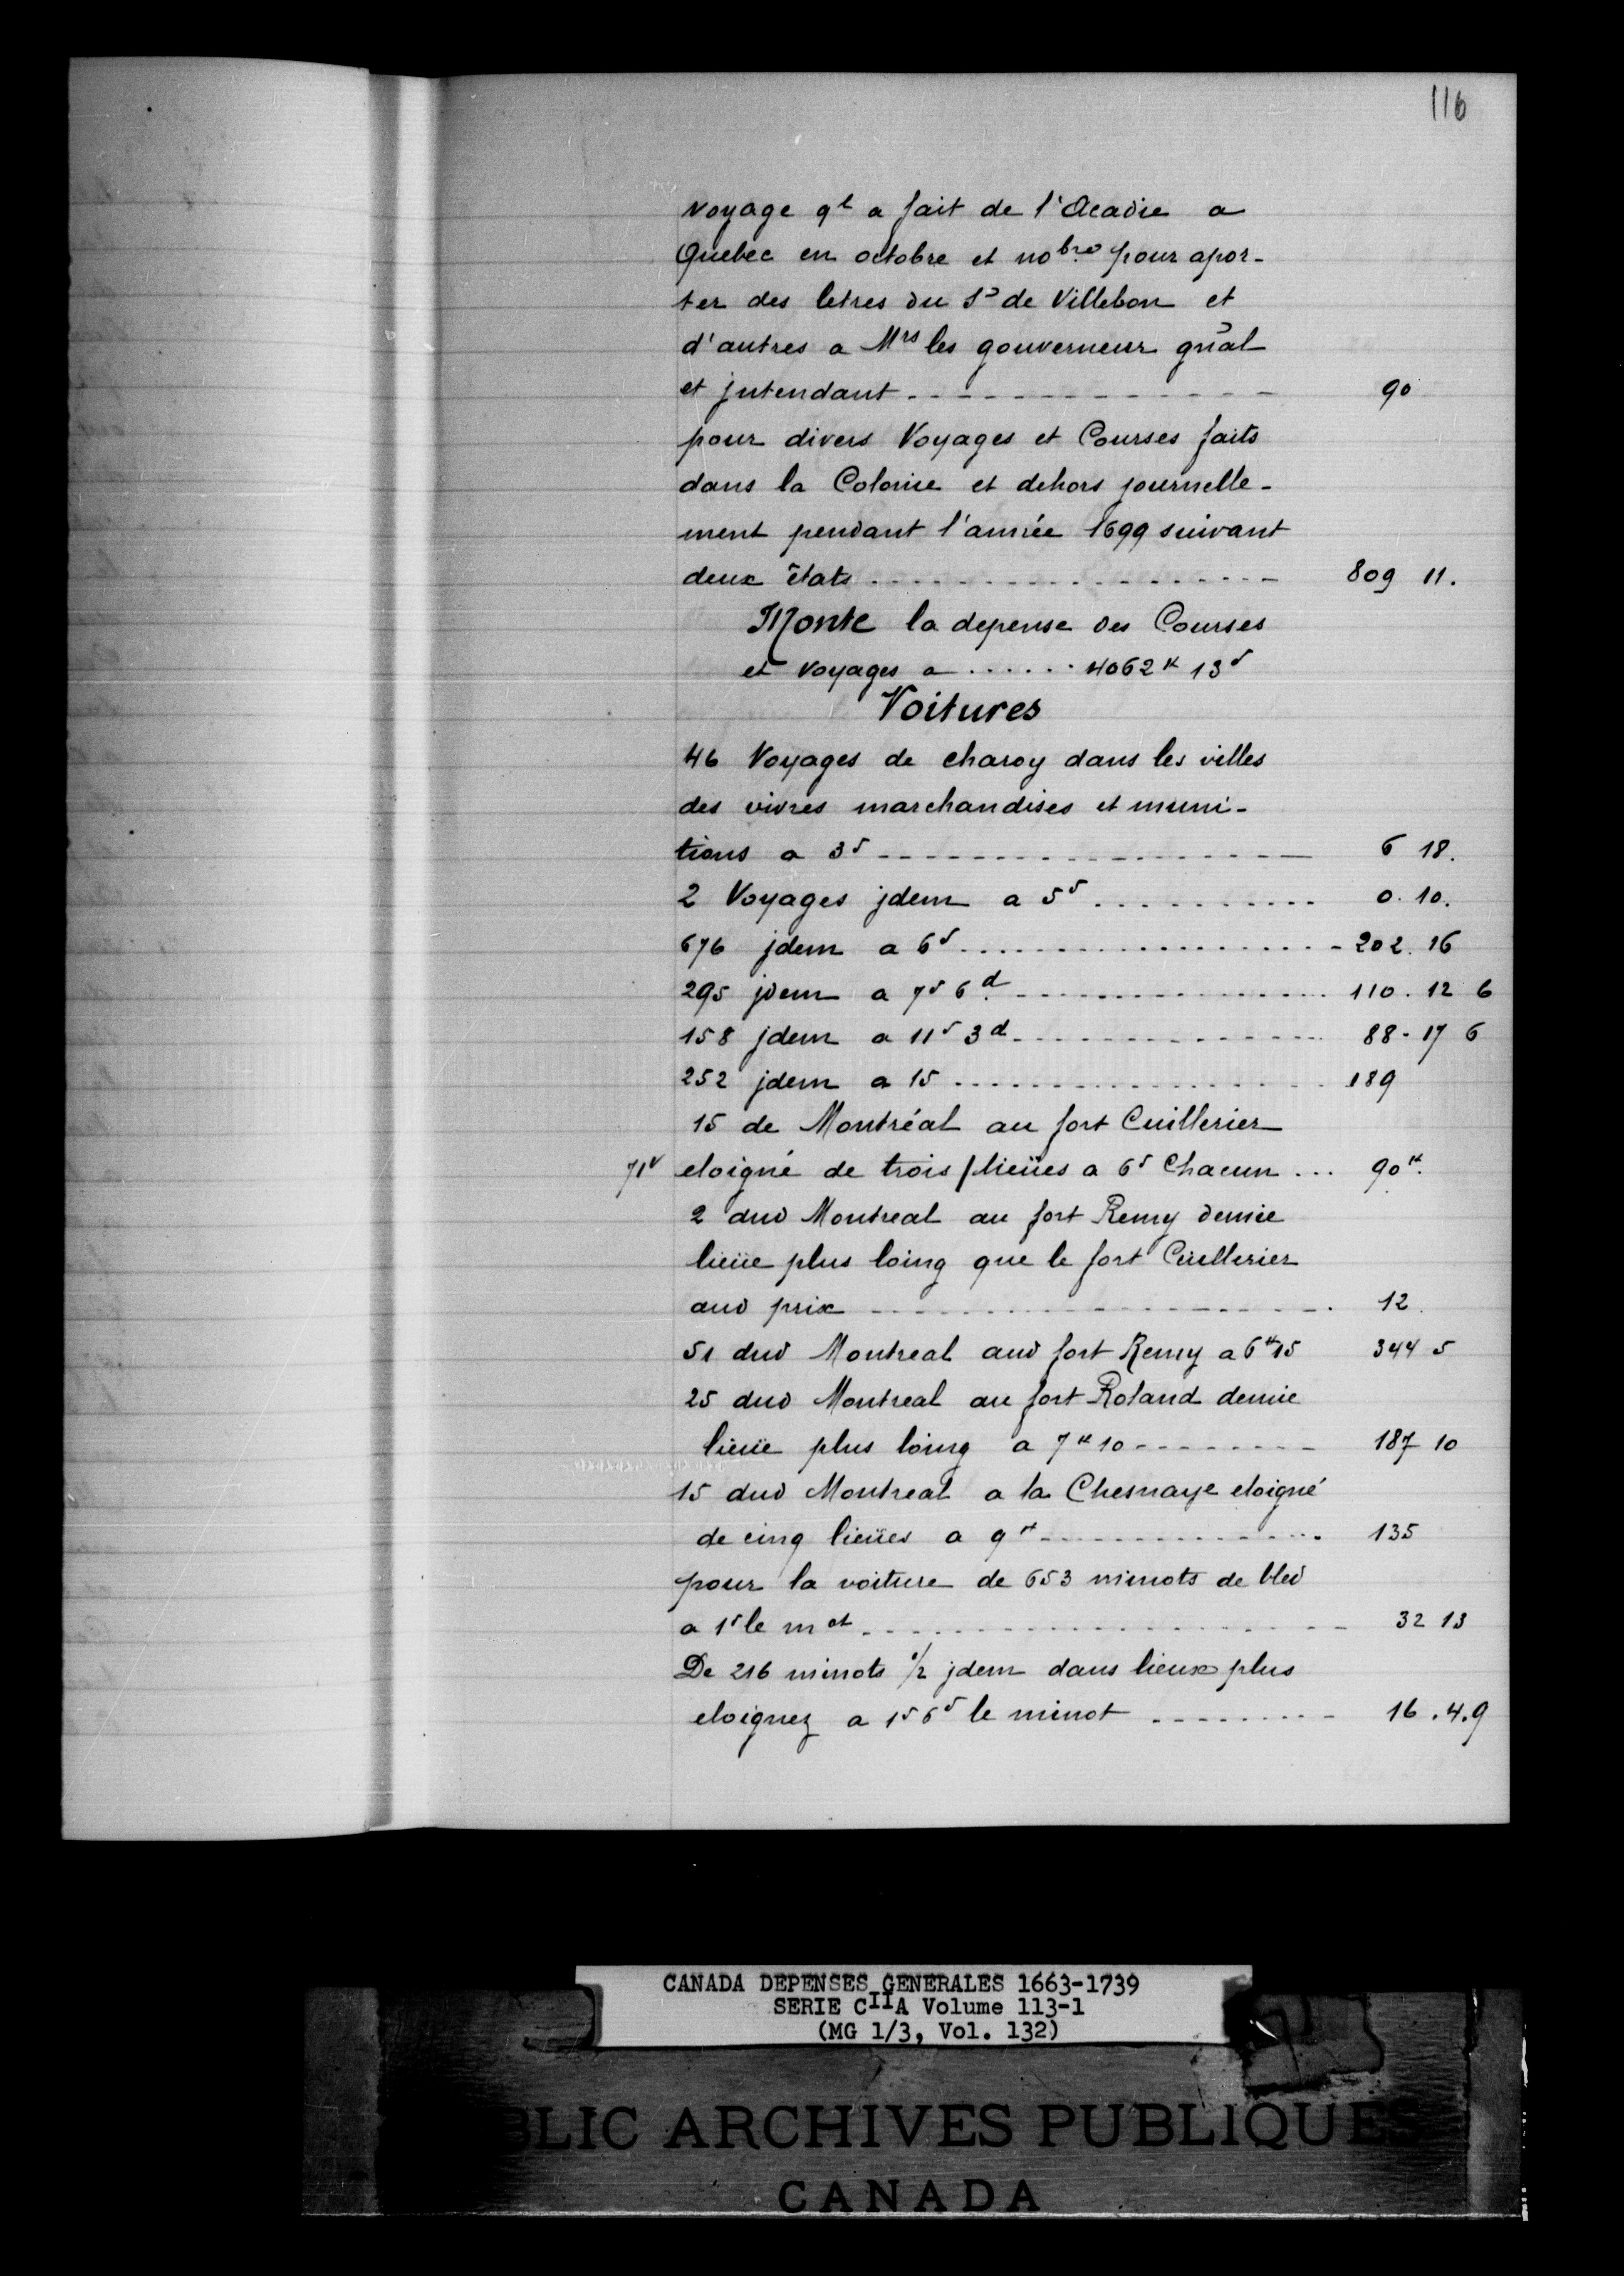 116
voyage ql a fait de l'Acadie a
Quebec en octobre et nobre pour apor-
ter des letres du Sr de Villebon et
d'autres a Mrs les gouverneur gñal
et jntendant - - - - - - - - - - 90
pour divers Voyages et Courses faits
dans la Colonie et dehors journelle-
ment pendant l'année 1699 suivant
deux états - - - - - - - - - - 809 11.
Monte la depense des Courses
et voyages a ...... 4062 ₶ 13 s
Voitures
46 Voyages de charoy dans les villes
des vivres marchandises et muni-
tions a 3 s - - - - - - - - - - 6 18.
2 Voyages jdem a 5 s . . . . . . . . . . 0. 10.
676 jdem a 6 s . . . . . . . . . . 202. 16
295 jdem a 7 s 6 d. - - - - - - - - - - 110. 12 6
158 jdem a 11 s 3 d - - - - - - - - - - 88 - 17 6
252 jdem a 15 . . . . . . . . . . 189
15 de Montréal au fort Cuillerier
71v eloigné de trois / lieües a 6 s Chacun ... 90 ₶.
2 dud Montreal au fort Remy demie
lieüe plus loing que le fort Cuillerier
aud prix - - - - - - - - - - 12.
51 dud Montreal aud fort Remy a 6 ₶ 15 344 5
25 dud Montreal au fort Roland demie
lieüe plus loing a 7 ₶ 10 - - - - - - - - 187 10
15 dud Montreal a la Chesnaye eloigné
de cinq lieües a 9 ₶ - - - - - - - - - - 135
pour la voiture de 653 minots de bled
a 1 s le mot - - - - - - - - - - 32 13
De 216 minots 1/2 jdem dans lieux plus
eloignez a 1 s 6 s le minot - - - - - - - - - 16 . 4. 9
CANADA DEPENSES GENERALES 1663-1739
SERIE CIIA Volume 113-1
(MG 1/3, Vol. 132)
BLIC ARCHIVES PUBLIQUES
CANADA